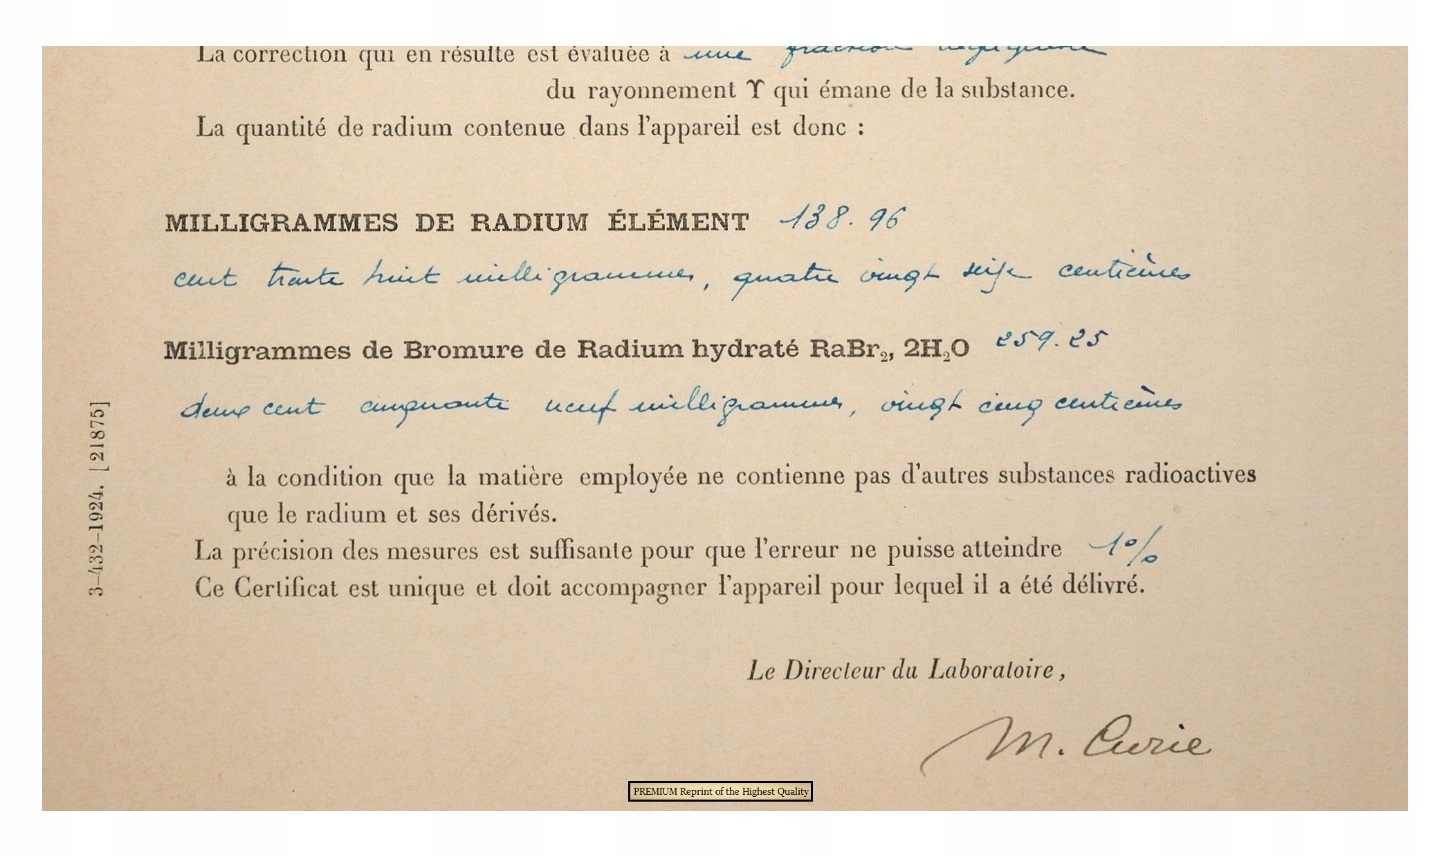 La correction qui en résulte est évaluée à une fraction négligeable
du rayonnement ϒ qui émane de la substance.
La quantité de radium contenue dans l'appareil est donc :
MILLIGRAMMES DE RADIUM ÉLÉMENT 138.96
cent trente huit milligrammes, quatre vingt seize centièmes
Milligrammes de Bromure de Radium hydraté RaBr₂, 2H₂O 259.25
deux cent cinquante neuf milligrammes, vingt cinq centièmes
à la condition que la matière employée ne contienne pas d'autres substances radioactives
que le radium et ses dérivés.
La précision des mesures est suffisante pour que l'erreur ne puisse atteindre 1%
Ce Certificat est unique et doit accompagner l'appareil pour lequel il a été délivré.
Le Directeur du Laboratoire,
M. Curie
3-432-1924. [21875]
PREMIUM Reprint of the Highest Quality